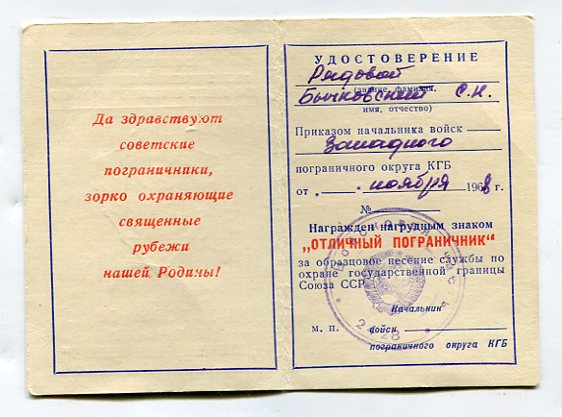 Да здравствуют
советские
пограничники,
зорко охраняющие
священные
рубежи
нашей Родины!
УДОСТОВЕРЕНИЕ
Рядовой
(звание, фамилия,
Бычковский С.Н.
имя, отчество)
Приказом начальника войск
Западного
пограничного округа КГБ
от „ — " ноября 1968 г.
№
Награжден нагрудным знаком
„ОТЛИЧНЫЙ ПОГРАНИЧНИК"
за образцовое несение службы по
охране государственной границы
Союза ССР
Начальник
м. п. войск
пограничного округа КГБ